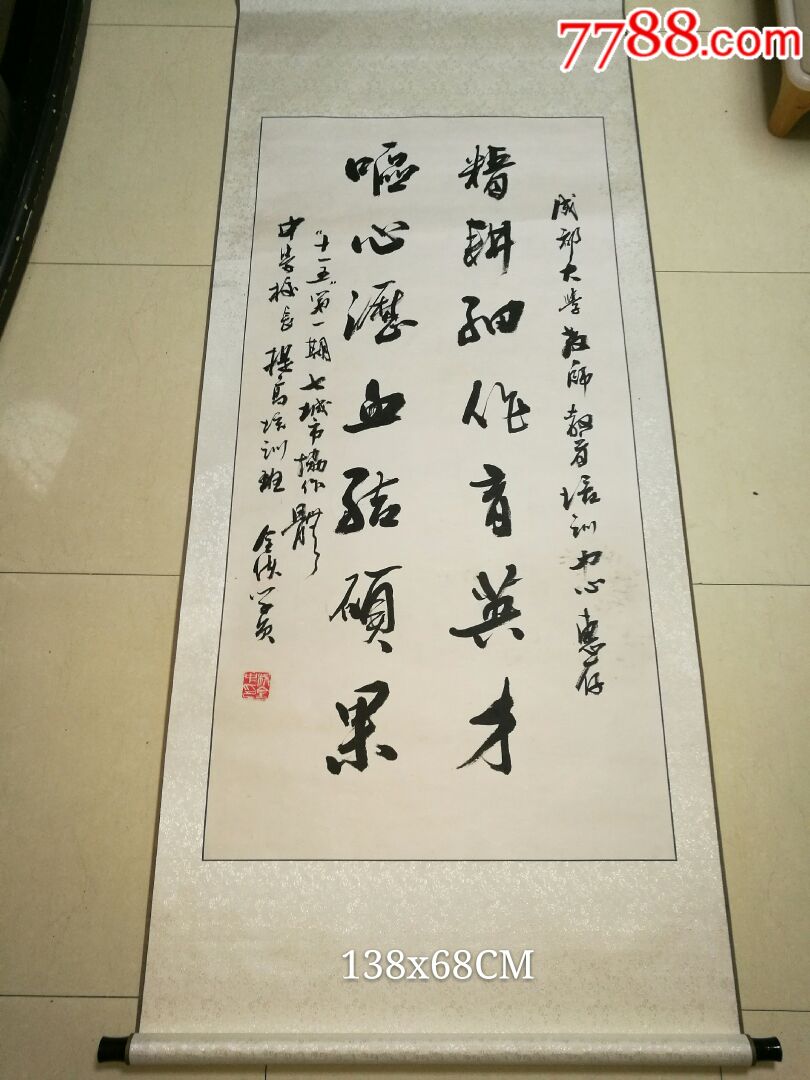 7788.com
成都大学教师教育培训中心惠存
精耕细作育英才
呕心沥血结硕果
"十一五"第一期七城市协作体
中学校长提高培训班 全体学员
138x68CM